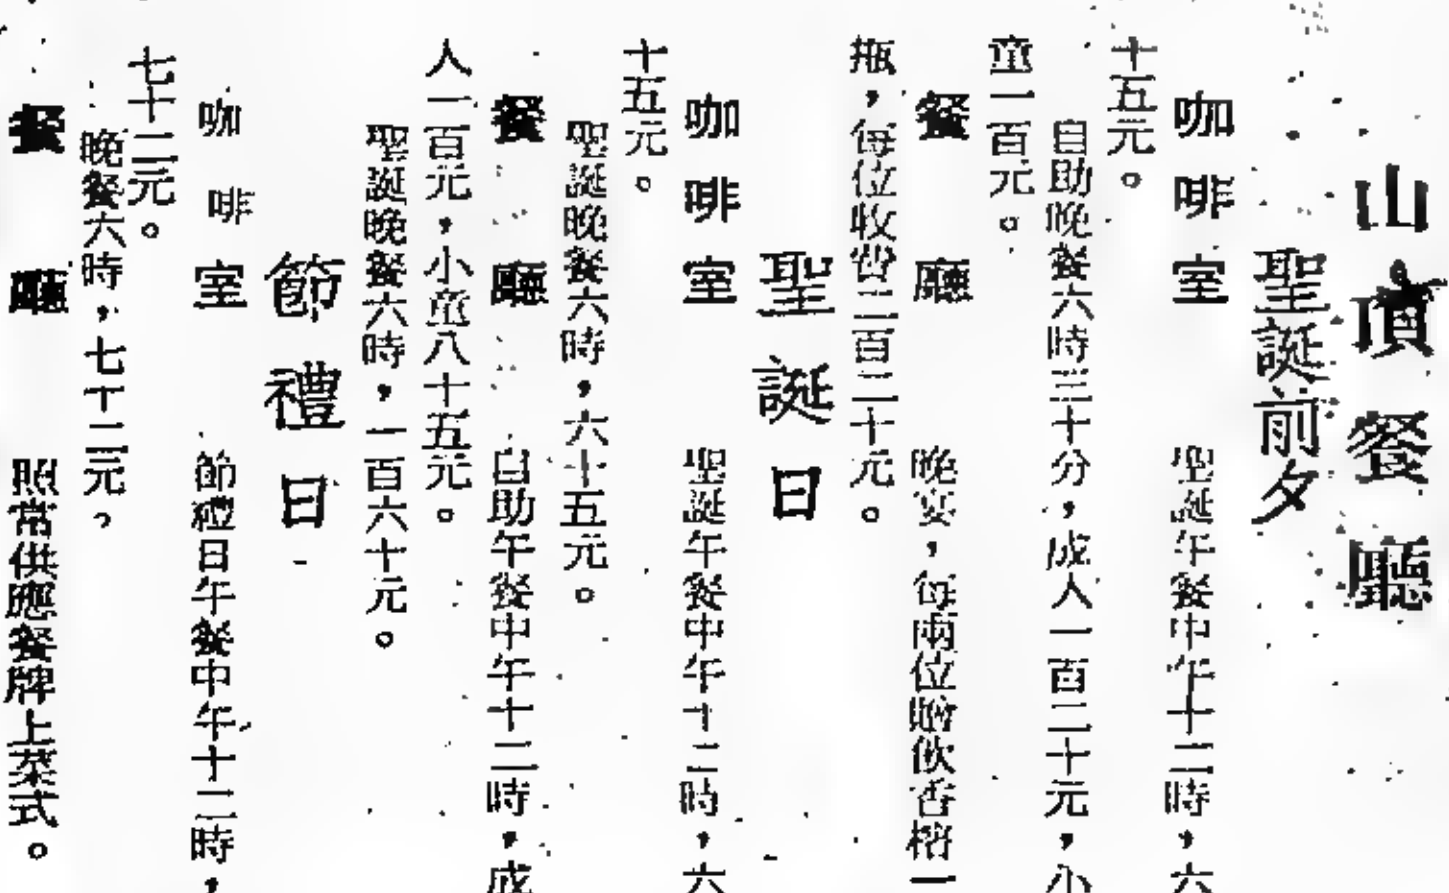 山頂餐廳
聖誕前夕
咖啡室 聖誕午餐中午十二時，六
十五元。
自助晚餐六時三十分，成人一百二十元，小
童一百元。
餐廳 晚宴，每兩位贈飲香檳一
瓶，每位收費二百二十元。
聖誕日
咖啡室 聖誕午餐中午十二時，六
十五元。
聖誕晚餐六時，六十五元。
餐廳 自助午餐中午十二時，成
人一百元，小童八十五元。
聖誕晚餐六時，一百六十元。
節禮日
咖啡室 節禮日午餐中午十二時，
七十二元。
晚餐六時，七十二元。
餐廳 照常供應餐牌上菜式。